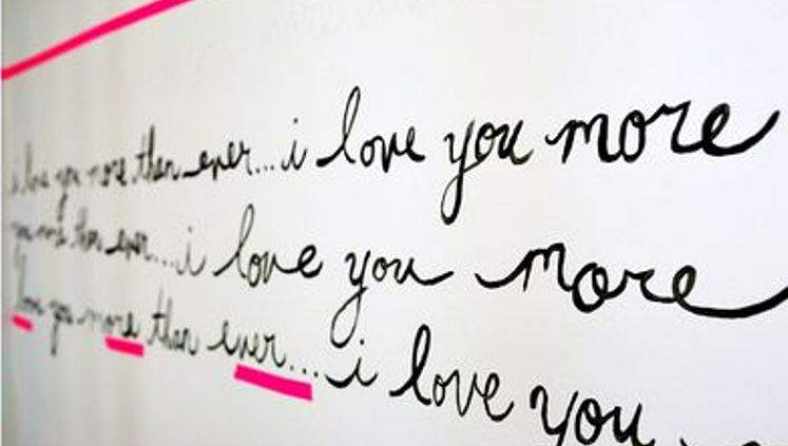 i love you more than ever...i love you more
you more than ever...i love you more
love you more than ever...i love you